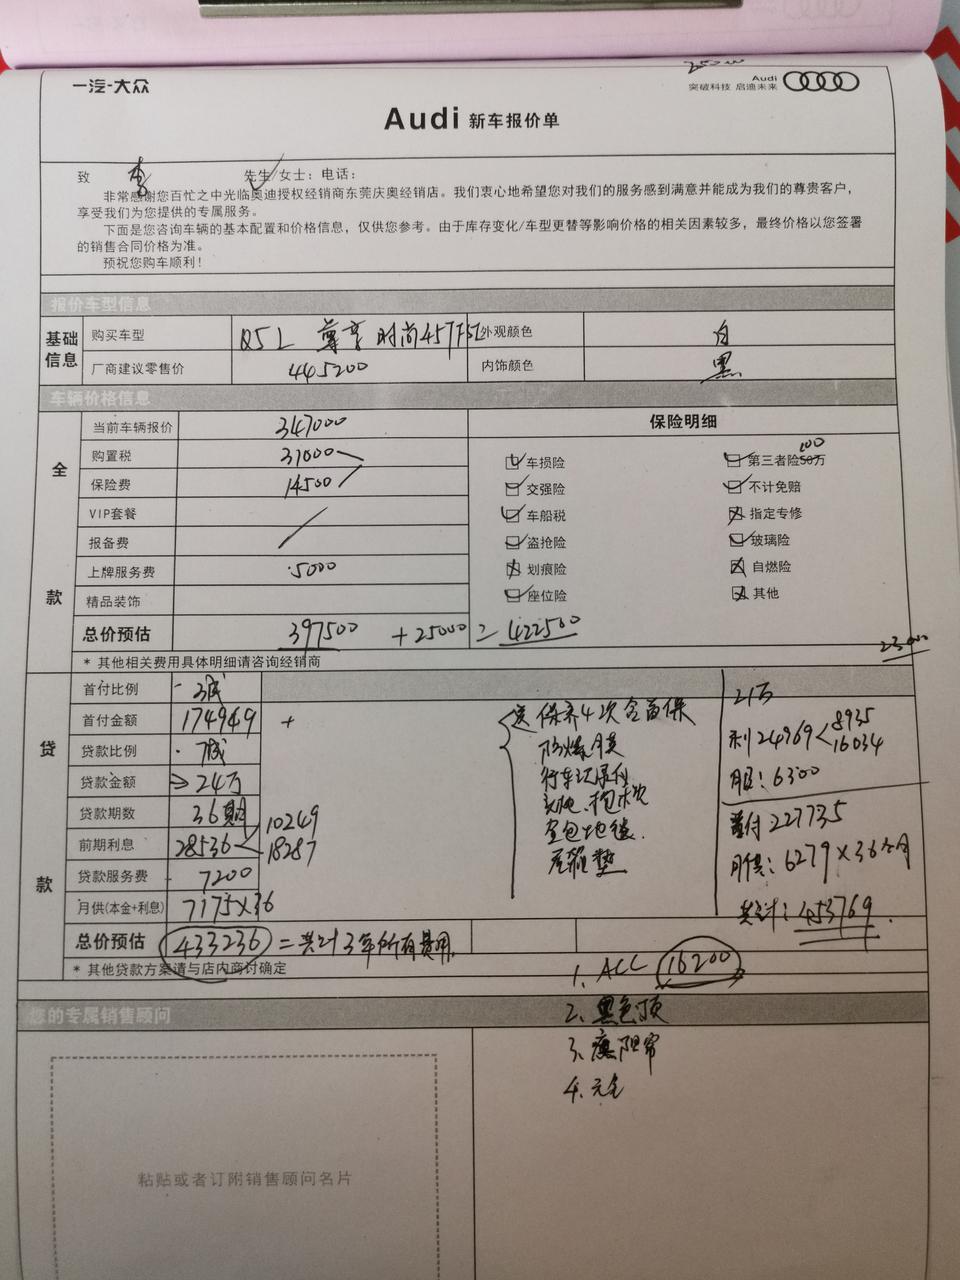 一汽-大众
Audi
突破科技 启迪未来
Audi 新车报价单
致 李 先生/女士：电话：
非常感谢您百忙之中光临奥迪授权经销商东莞庆奥经销店。我们衷心地希望您对我们的服务感到满意并能成为我们的尊贵客户，
享受我们为您提供的专属服务。
下面是您咨询车辆的基本配置和价格信息，仅供您参考。由于库存变化/车型更替等影响价格的相关因素较多，最终价格以您签署
的销售合同价格为准。
预祝您购车顺利！
报价车型信息
基础信息
购买车型 Q5L 尊享时尚45TFSI 外观颜色 白
厂商建议零售价 445200 内饰颜色 黑
车辆价格信息
全款
当前车辆报价 347000 保险明细
购置税 31000 车损险 第三者险50万 100
保险费 14500 交强险 不计免赔
VIP套餐 车船税 指定专修
报备费 盗抢险 玻璃险
上牌服务费 5000 划痕险 自燃险
精品装饰 座位险 其他
总价预估 397500 + 25000 = 422500
* 其他相关费用具体明细请咨询经销商
23000
贷款
首付比例 3成
首付金额 174949 +
贷款比例 7成
贷款金额 24万
贷款期数 36期
前期利息 28536 10249
18287
贷款服务费 7200
月供(本金+利息) 7175×36
总价预估 433236 = 共计3年所有费用
* 其他贷款方案请与店内商讨确定
送 保养4次含首保
防爆膜
行车记录仪
全包地毯
尾箱垫
21万
利24969 8935
16034
服：6300
首付 227735
月供：6279×36个月
共计：453769
1. ACC 16200
2. 黑色顶
3. 遮阳帘
4.
您的专属销售顾问
粘贴或者订附销售顾问名片